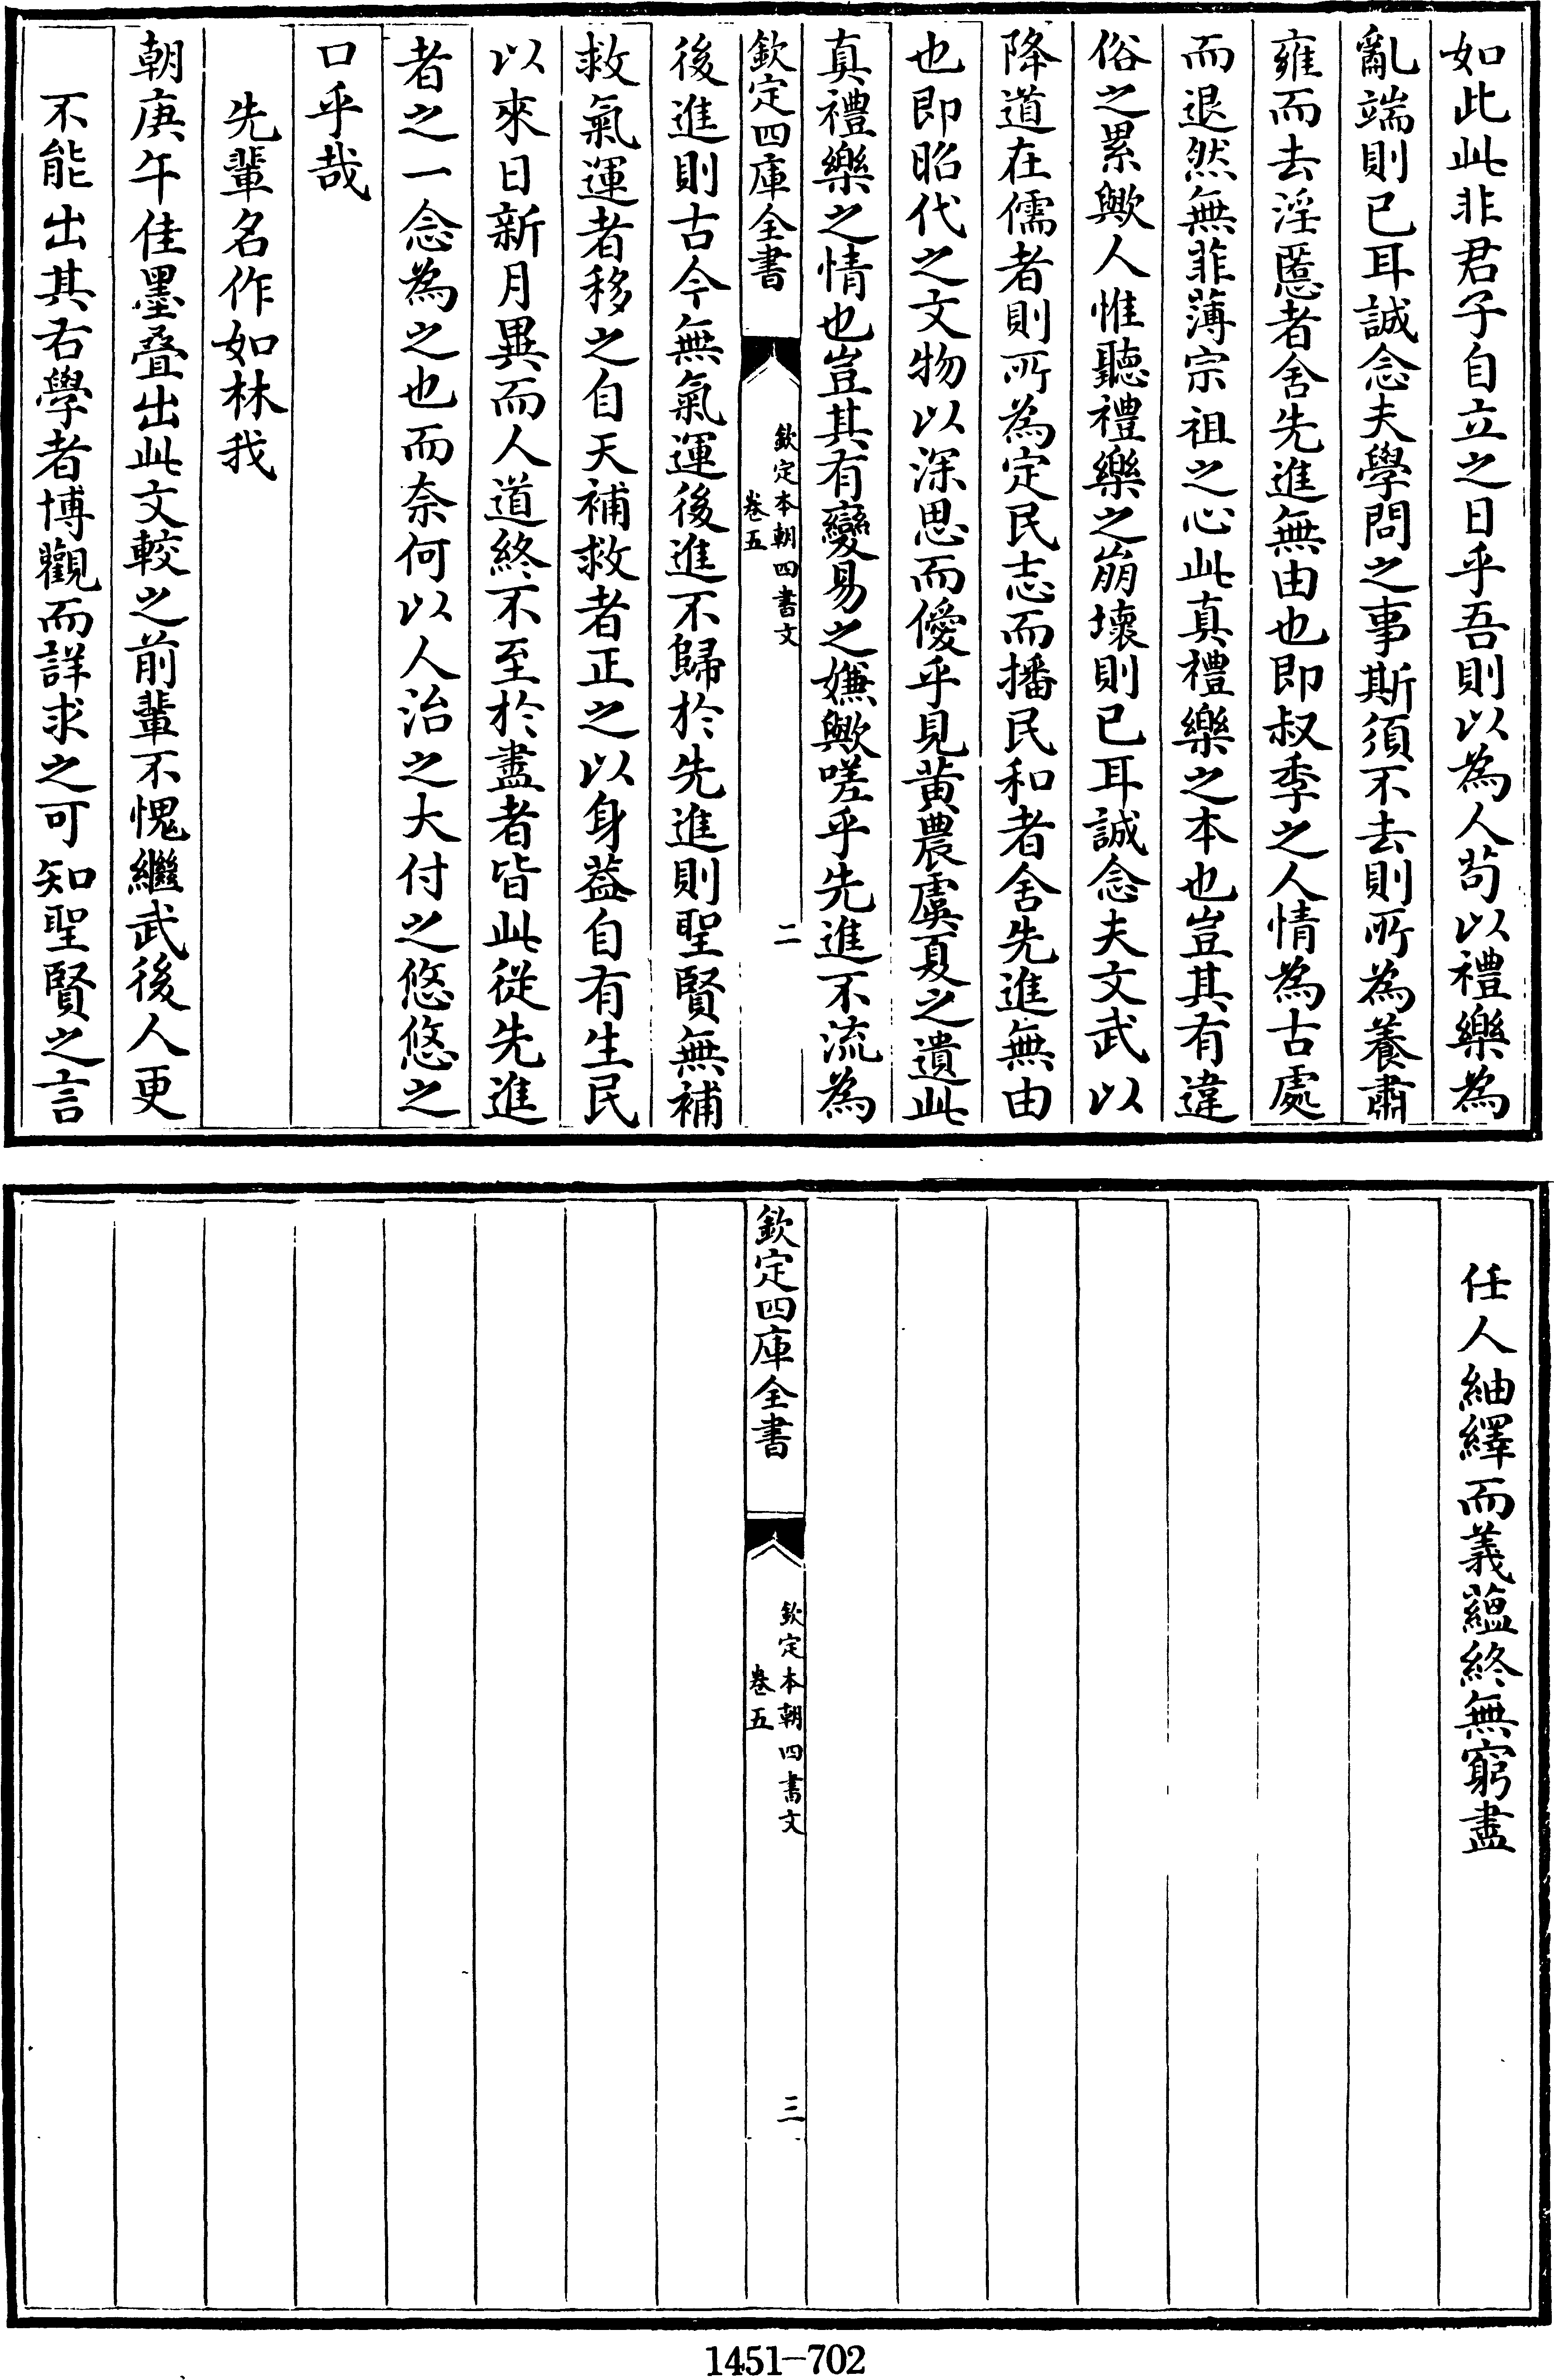 如此此非君子自立之日乎吾則以為人苟以禮樂為
亂端則已耳誠念夫學問之事斯須不去則所為養肅
雍而去淫慝者舍先進無由也即叔季之人情為古處
而退然無菲薄宗祖之心此真禮樂之本也豈其有違
俗之累歟人惟聽禮樂之崩壞則已耳誠念夫文武以
降道在儒者則所為定民志而播民和者舍先進無由
也即昭代之文物以深思而僾乎見黄農虞夏之遺此
真禮樂之情也豈其有變易之嫌歟嗟乎先進不流為
欽定四庫全書
欽定本朝四書文
卷五
二
後進則古今無氣運後進不歸於先進則聖賢無補
救氣運者移之自天補救者正之以身葢自有生民
以來日新月異而人道終不至於盡者皆此從先進
者之一念為之也而奈何以人治之大付之悠悠之
口乎哉
先輩名作如林我
朝庚午佳墨叠出此文較之前輩不愧繼武後人更
不能出其右學者博觀而詳求之可知聖賢之言
任人紬繹而義蘊終無窮盡
欽定四庫全書
欽定本朝四書文
卷五
三
1451-702